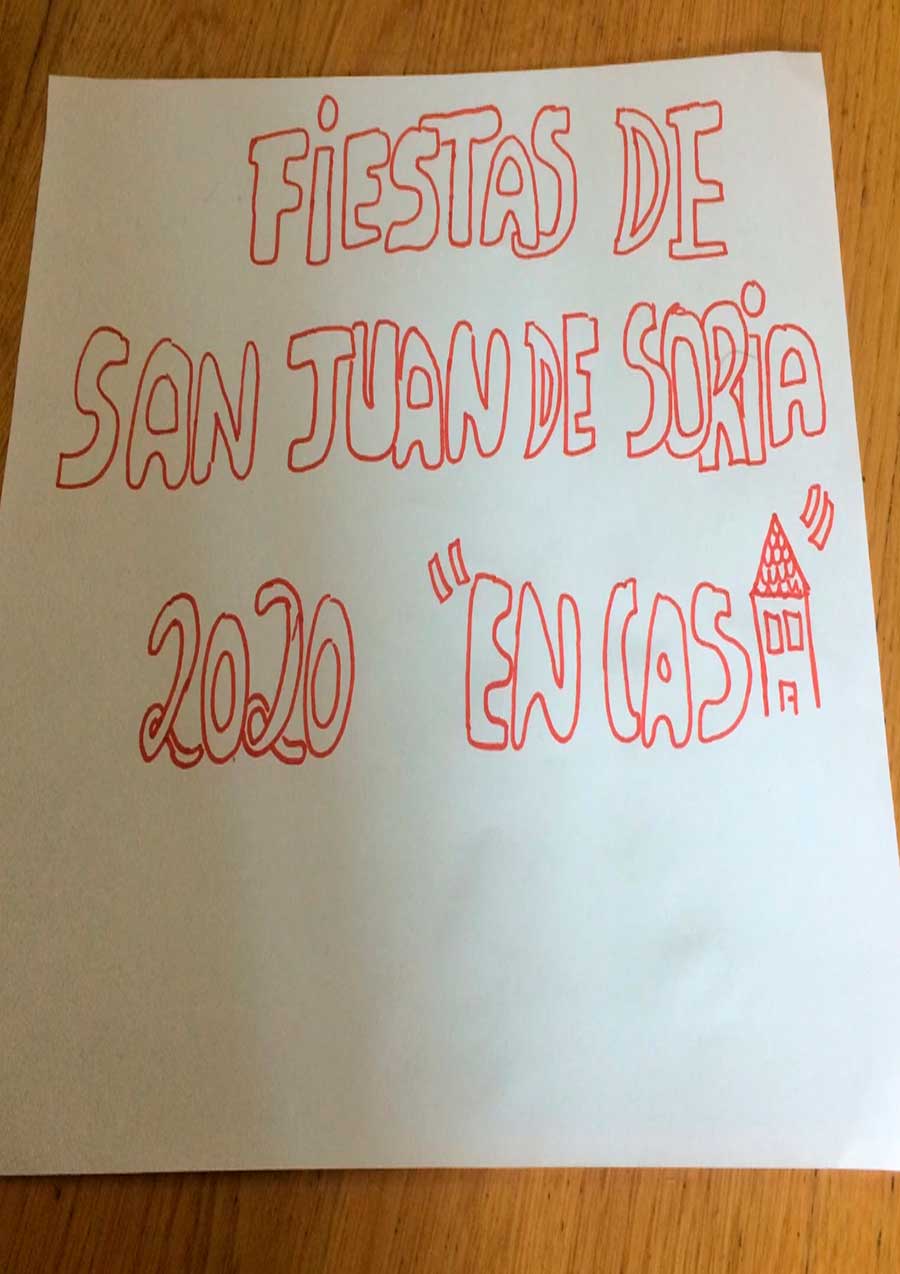 FiESTAS DE
SAN JUAN DE SORiA
2020 "EN CASA"